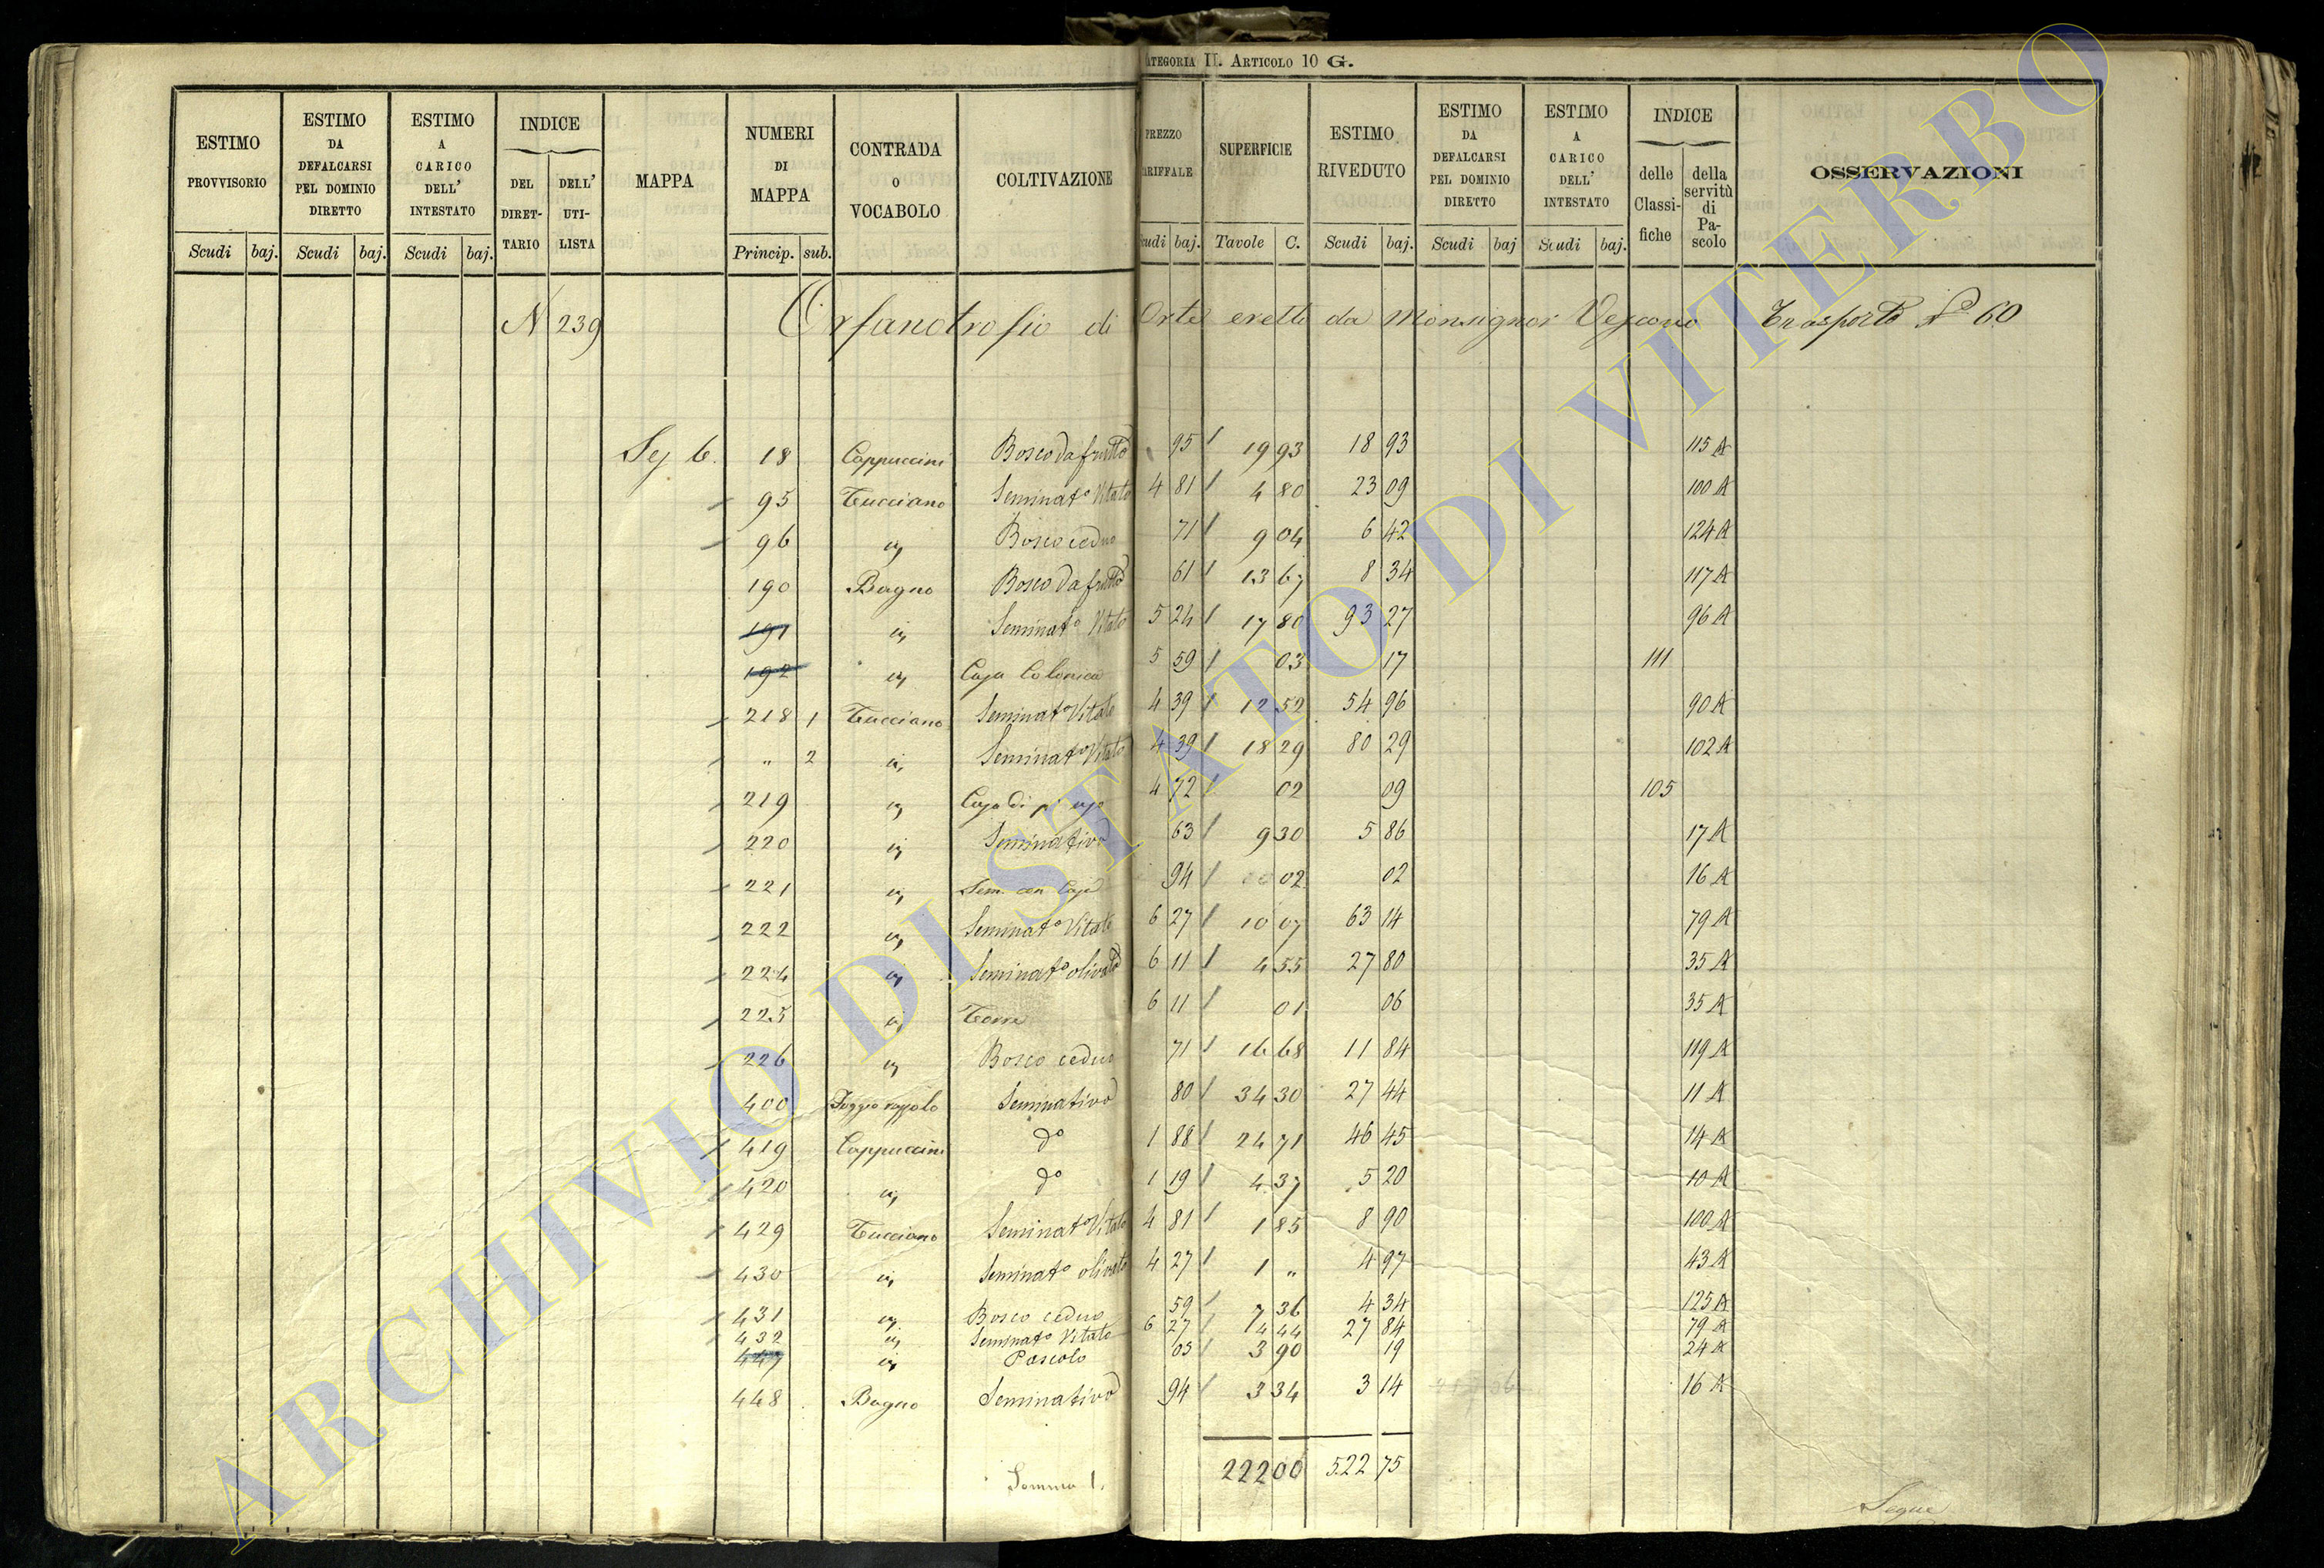 CATEGORIA II. ARTICOLO 10 G.
ESTIMO PROVVISORIO Scudi baj. ESTIMO DA DEFALCARSI PEL DOMINIO DIRETTO Scudi baj. ESTIMO A CARICO DELL' INTESTATO Scudi baj. INDICE DEL DIRETTARIO DELL' UTILISTA MAPPA NUMERI DI MAPPA Princip. sub. CONTRADA O VOCABOLO COLTIVAZIONE PREZZO TARIFFALE Scudi baj. SUPERFICIE Tavole C. ESTIMO RIVEDUTO Scudi baj. ESTIMO DA DEFALCARSI PEL DOMINIO DIRETTO Scudi baj ESTIMO A CARICO DELL' INTESTATO Scudi baj. INDICE delle Classifiche della servitù di Pascolo OSSERVAZIONI
N 239 Orfanotrofio di Orte eretto da Monsignor Vescovo Trasporto N° 60
Sez 6. 18 Cappuccini Bosco da frutto 95 19 93 18 93 115 A
95 Tucciano Seminat° Vitato 4 81 4 80 23 09 100 A
96 " Bosco ceduo 71 9 04 6 42 124 A
190 Bagno Bosco da frutto 61 13 67 8 34 117 A
191 " Seminat° Vitato 5 24 17 80 93 27 96 A
192 " Casa Colonica 5 59 03 17 111
218 1 Tucciano Seminat° Vitato 4 39 12 52 54 96 90 A
" 2 " Seminat° Vitato 4 39 18 29 80 29 102 A
219 " Casa di 4 72 02 09 105
220 " Seminativo 63 9 30 5 86 17 A
221 " Sem. con Casa 94 02 02 16 A
222 " Seminat° Vitato 6 27 10 07 63 14 79 A
224 " Seminat° olivato 6 11 4 55 27 80 35 A
225 " Torre 6 11 01 06 35 A
226 " Bosco ceduo 71 16 68 11 84 119 A
400 Seminativo 80 34 30 27 44 11 A
419 Cappuccini d° 1 88 24 71 46 45 14 A
420 " d° 1 19 4 37 5 20 10 A
429 Tucciano Seminat° Vitato 4 81 1 85 8 90 100 A
430 " Seminat° olivato 4 27 1 " 4 97 43 A
431 " Bosco ceduo 59 7 36 4 34 125 A
432 " Seminat° Vitato 6 27 4 44 27 84 79 A
447 " Pascolo 05 3 90 19 24 A
448 Bagno Seminativo 94 3 34 3 14 16 A
Somma 222 00 522 75
Segue
ARCHIVIO DI STATO DI VITERBO